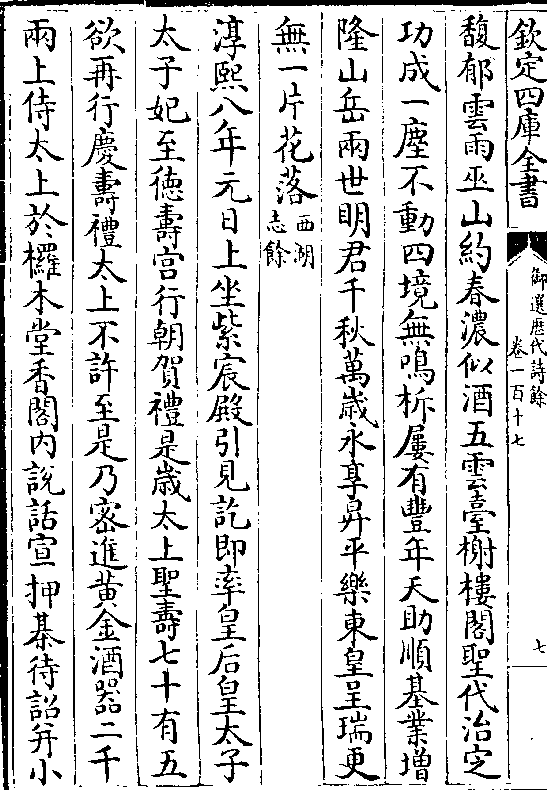 欽定四庫全書
御選歴代詩餘
卷一百十七
七
馥郁雲雨巫山約春濃似酒五雲臺榭樓閣聖代治定
功成一塵不動四境無鳴柝屢有豐年天助順基業增
隆山岳兩世明君千秋萬歳永享昇平樂東皇呈瑞更
無一片花落西湖志餘
淳熙八年元日上坐紫宸殿引見訖即率皇后皇太子
太子妃至徳壽宫行朝賀禮是歳太上聖壽七十有五
欲再行慶壽禮太上不許至是乃宻進黄金酒器二千
兩上侍太上於欏木堂香閣内說話宣押棊待詔并小